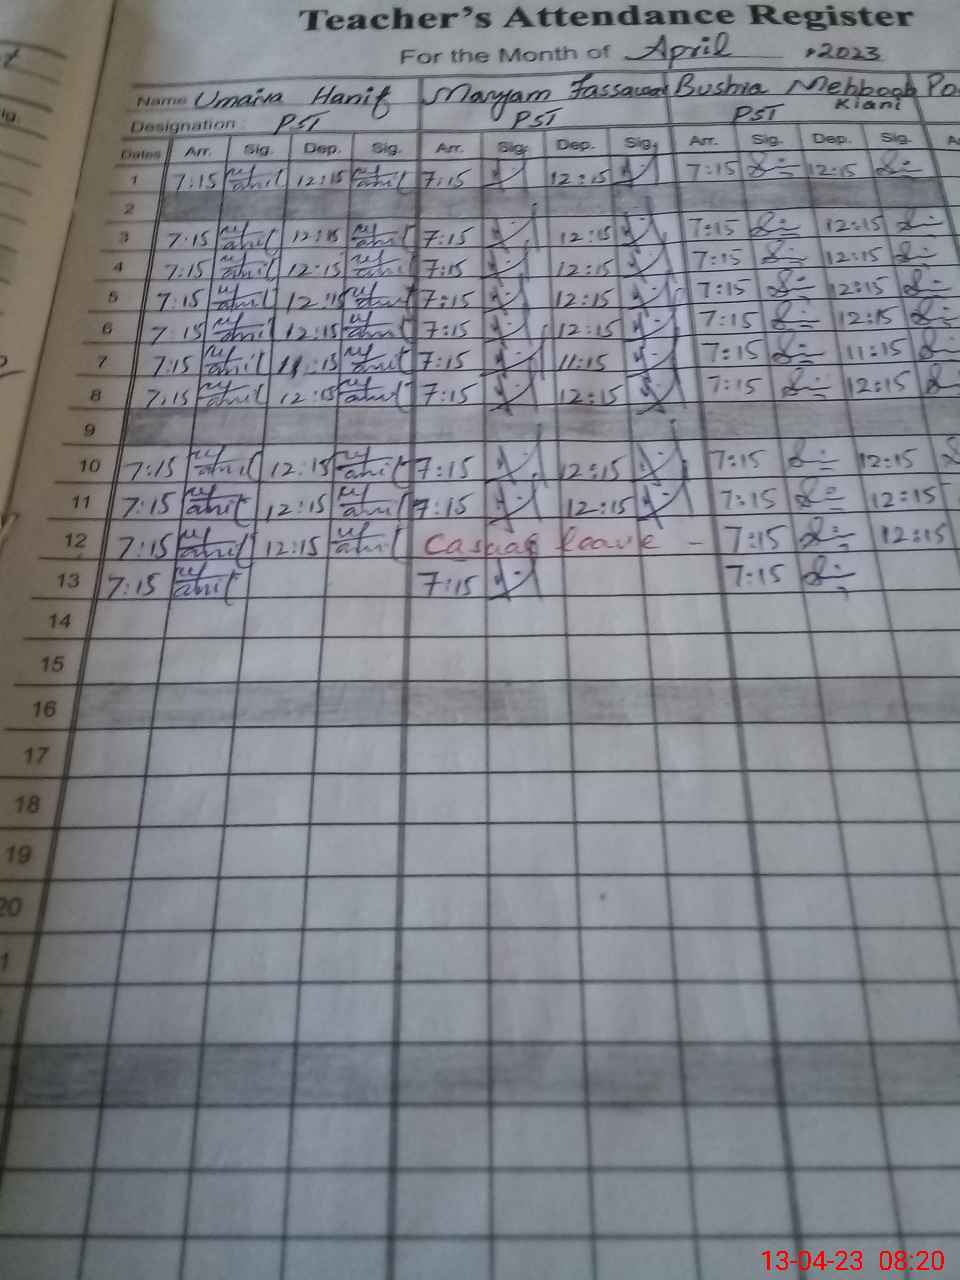 Teacher's Attendance Register
For the Month of April, 2023
Name Umaiva Hanif Maryam Bushra Mehboob Kiani
Designation: PST PST PST
Dates Arr. Sig. Dep. Sig. Arr. Sig. Dep. Sig. Arr. Sig. Dep. Sig.
1 7:15 12:15 7:15 12:15 7:15 12:15
2
3 7:15 12:15 7:15 12:15 7:15 12:15
4 7:15 12:15 7:15 12:15 7:15 12:15
5 7:15 12:15 7:15 12:15 7:15 12:15
6 7:15 12:15 7:15 12:15 7:15 12:15
7 7:15 11:15 7:15 11:15 7:15 11:15
8 7:15 12:15 7:15 12:15 7:15 12:15
9
10 7:15 12:15 7:15 12:15 7:15 12:15
11 7:15 12:15 7:15 12:15 7:15 12:15
12 7:15 12:15 Casual leave - 7:15 12:15
13 7:15 7:15 7:15
14
15
16
17
18
19
20
13-04-23 08:20